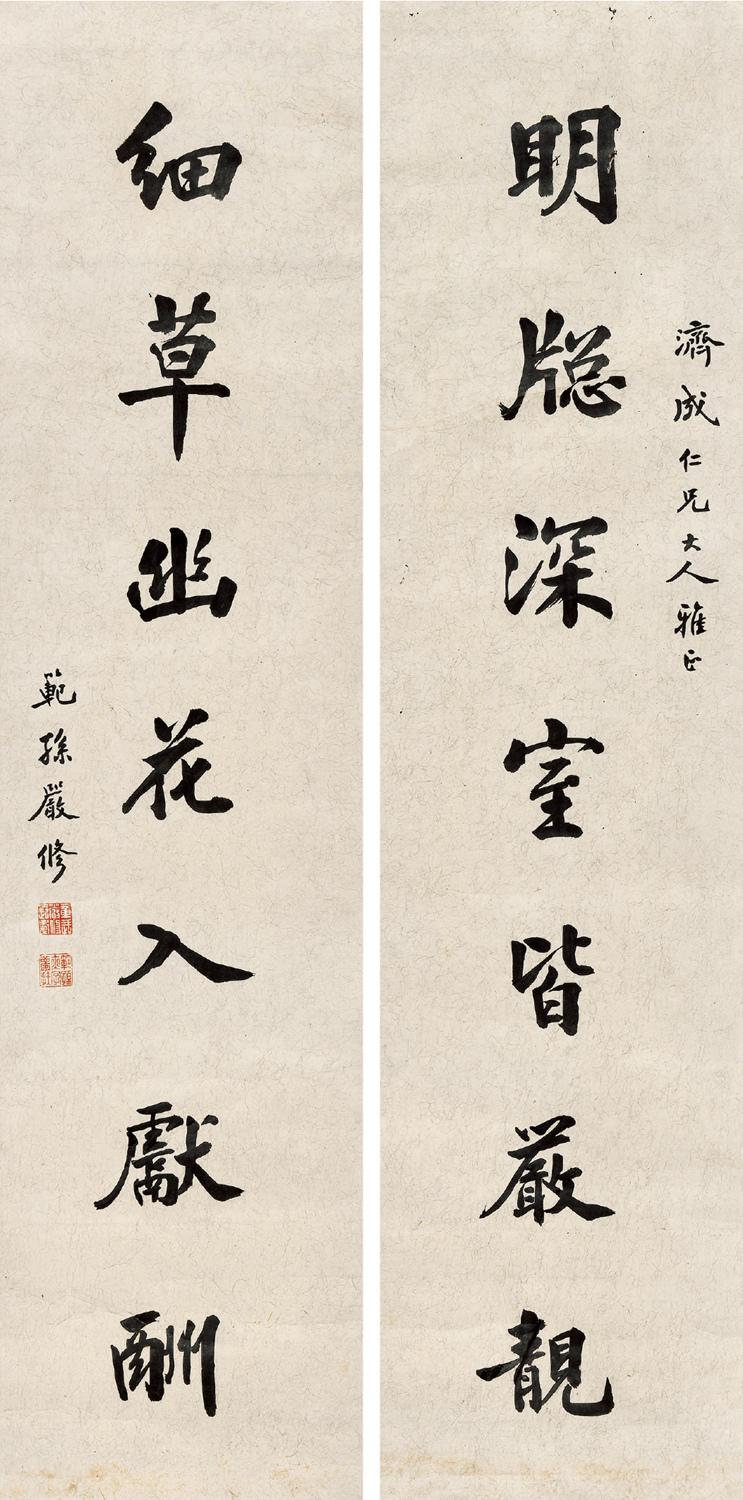 濟成仁兄大人雅正
明牕深室皆嚴靚
細草幽花入獻酬
範孫嚴修